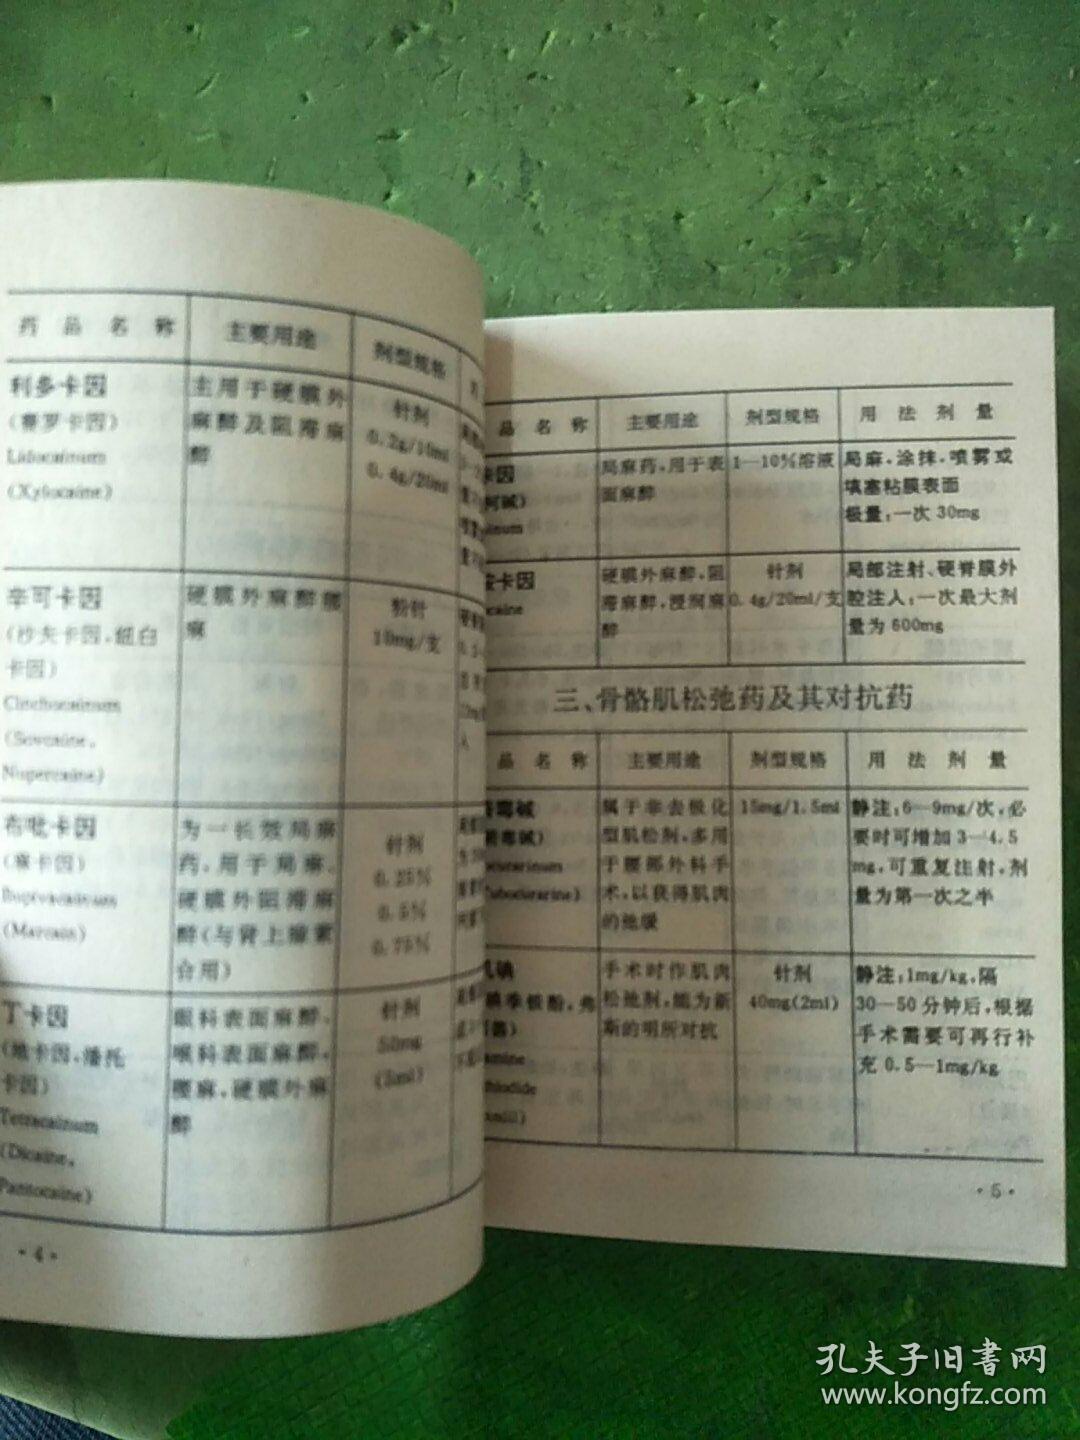 药品名称 主要用途 剂型规格
利多卡因 主用于硬膜外 针剂
(赛罗卡因) 麻醉及阻滞麻 0.2g/10ml
Lidocainum 醉 0.4g/20ml
(Xylocaine)
辛可卡因 硬膜外麻醉腰 粉针
(沙夫卡因,纽白 麻 10mg/支
卡因)
Cinchocainum
(Sovcaine,
Nupercaine)
布吡卡因 为一长效局麻 针剂
(麻卡因) 药,用于局麻、 0.25%
Bupivacainum 硬膜外阻滞麻 0.5%
(Marcain) 醉(与肾上腺素 0.75%
合用)
丁卡因 眼科表面麻醉、 针剂
(地卡因,潘托 喉科表面麻醉, 50mg
卡因) 腰麻,硬膜外麻 (5ml)
Tetracainum 醉
(Dicaine,
Pantocaine)
·4·
品名称 主要用途 剂型规格 用法剂量
卡因 局麻药,用于表 1—10%溶液 局麻,涂抹,喷雾或
柯碱) 面麻醉 填塞粘膜表面
inum 极量:一次30mg
卡因 硬膜外麻醉,阻 针剂 局部注射、硬脊膜外
caine 滞麻醉,浸润麻 0.4g/20ml/支 腔注入:一次最大剂
醉 量为600mg
三、骨骼肌松弛药及其对抗药
品名称 主要用途 剂型规格 用法剂量
箭毒碱 属于非去极化 15mg/1.5ml 静注:6—9mg/次,必
箭毒碱) 型肌松剂,多用 要时可增加3—4.5
ocurarinum 于腰部外科手 mg,可重复注射,剂
Tubocurarine) 术,以获得肌肉 量为第一次之半
的弛缓
肌碘 手术时作肌肉 针剂 静注:1mg/kg,隔
季铵酚,弗 松弛剂,能为新 40mg(2ml) 30—50分钟后,根据
斯的明所对抗 手术需要可再行补
amine 充0.5—1mg/kg
thiodide
·5·
孔夫子旧書网
www.kongfz.com